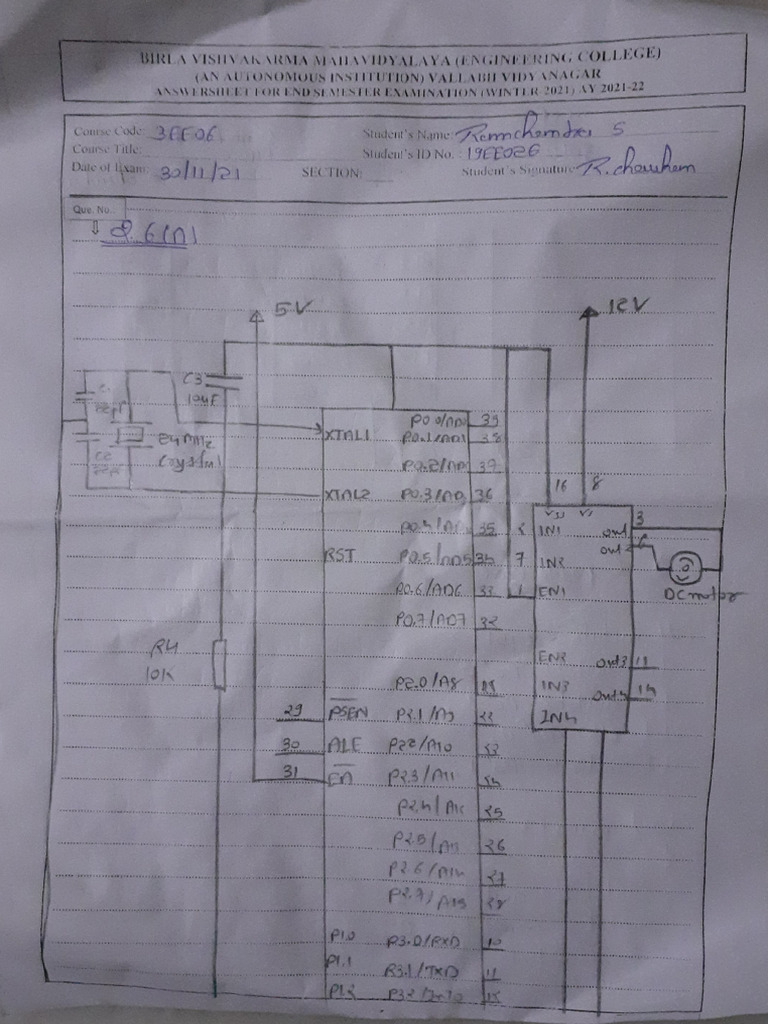 BIRLA VISHVAKARMA MAHAVIDYALAYA (ENGINEERING COLLEGE)
(AN AUTONOMOUS INSTITUTION) VALLABH VIDYANAGAR
ANSWERSHEET FOR END SEMESTER EXAMINATION (WINTER 2021) AY 2021-22
Course Code: 3EE06 Student's Name:
Course Title: Student's ID No. : 19EE026
Date of Exam: 30/11/21 SECTION: Student's Signature R. chauhan
Que. No.
Q.6(A)
5V 12V
C3
10uF
22pf
24MHz
Crystal
C2
22p
XTAL1 P0.0/AD 39
P0.1/AD1 38
P0.2/AD
XTAL2 P0.3/AD 36
16 8
VSS VS
P0.4/A 35 IN1 out 3
out 2 6
RST P0.5/AD5 34 7 IN2
P0.6/AD6 33 1 EN1 DC motor
P0.7/AD7 32
R4
10K
EN2 out3 11
P2.0/A8 IN3 out4 14
29 PSEN P2.1/A9 22 IN4
30 ALE P22/A10 23
31 EA P2.3/A11 24
P2.4/A12 25
P2.5/A 26
P2.6/A14 27
P2.7/A15 28
P1.0 P3.0/RXD 10
P1.1 P3.1/TXD 11
P1.2